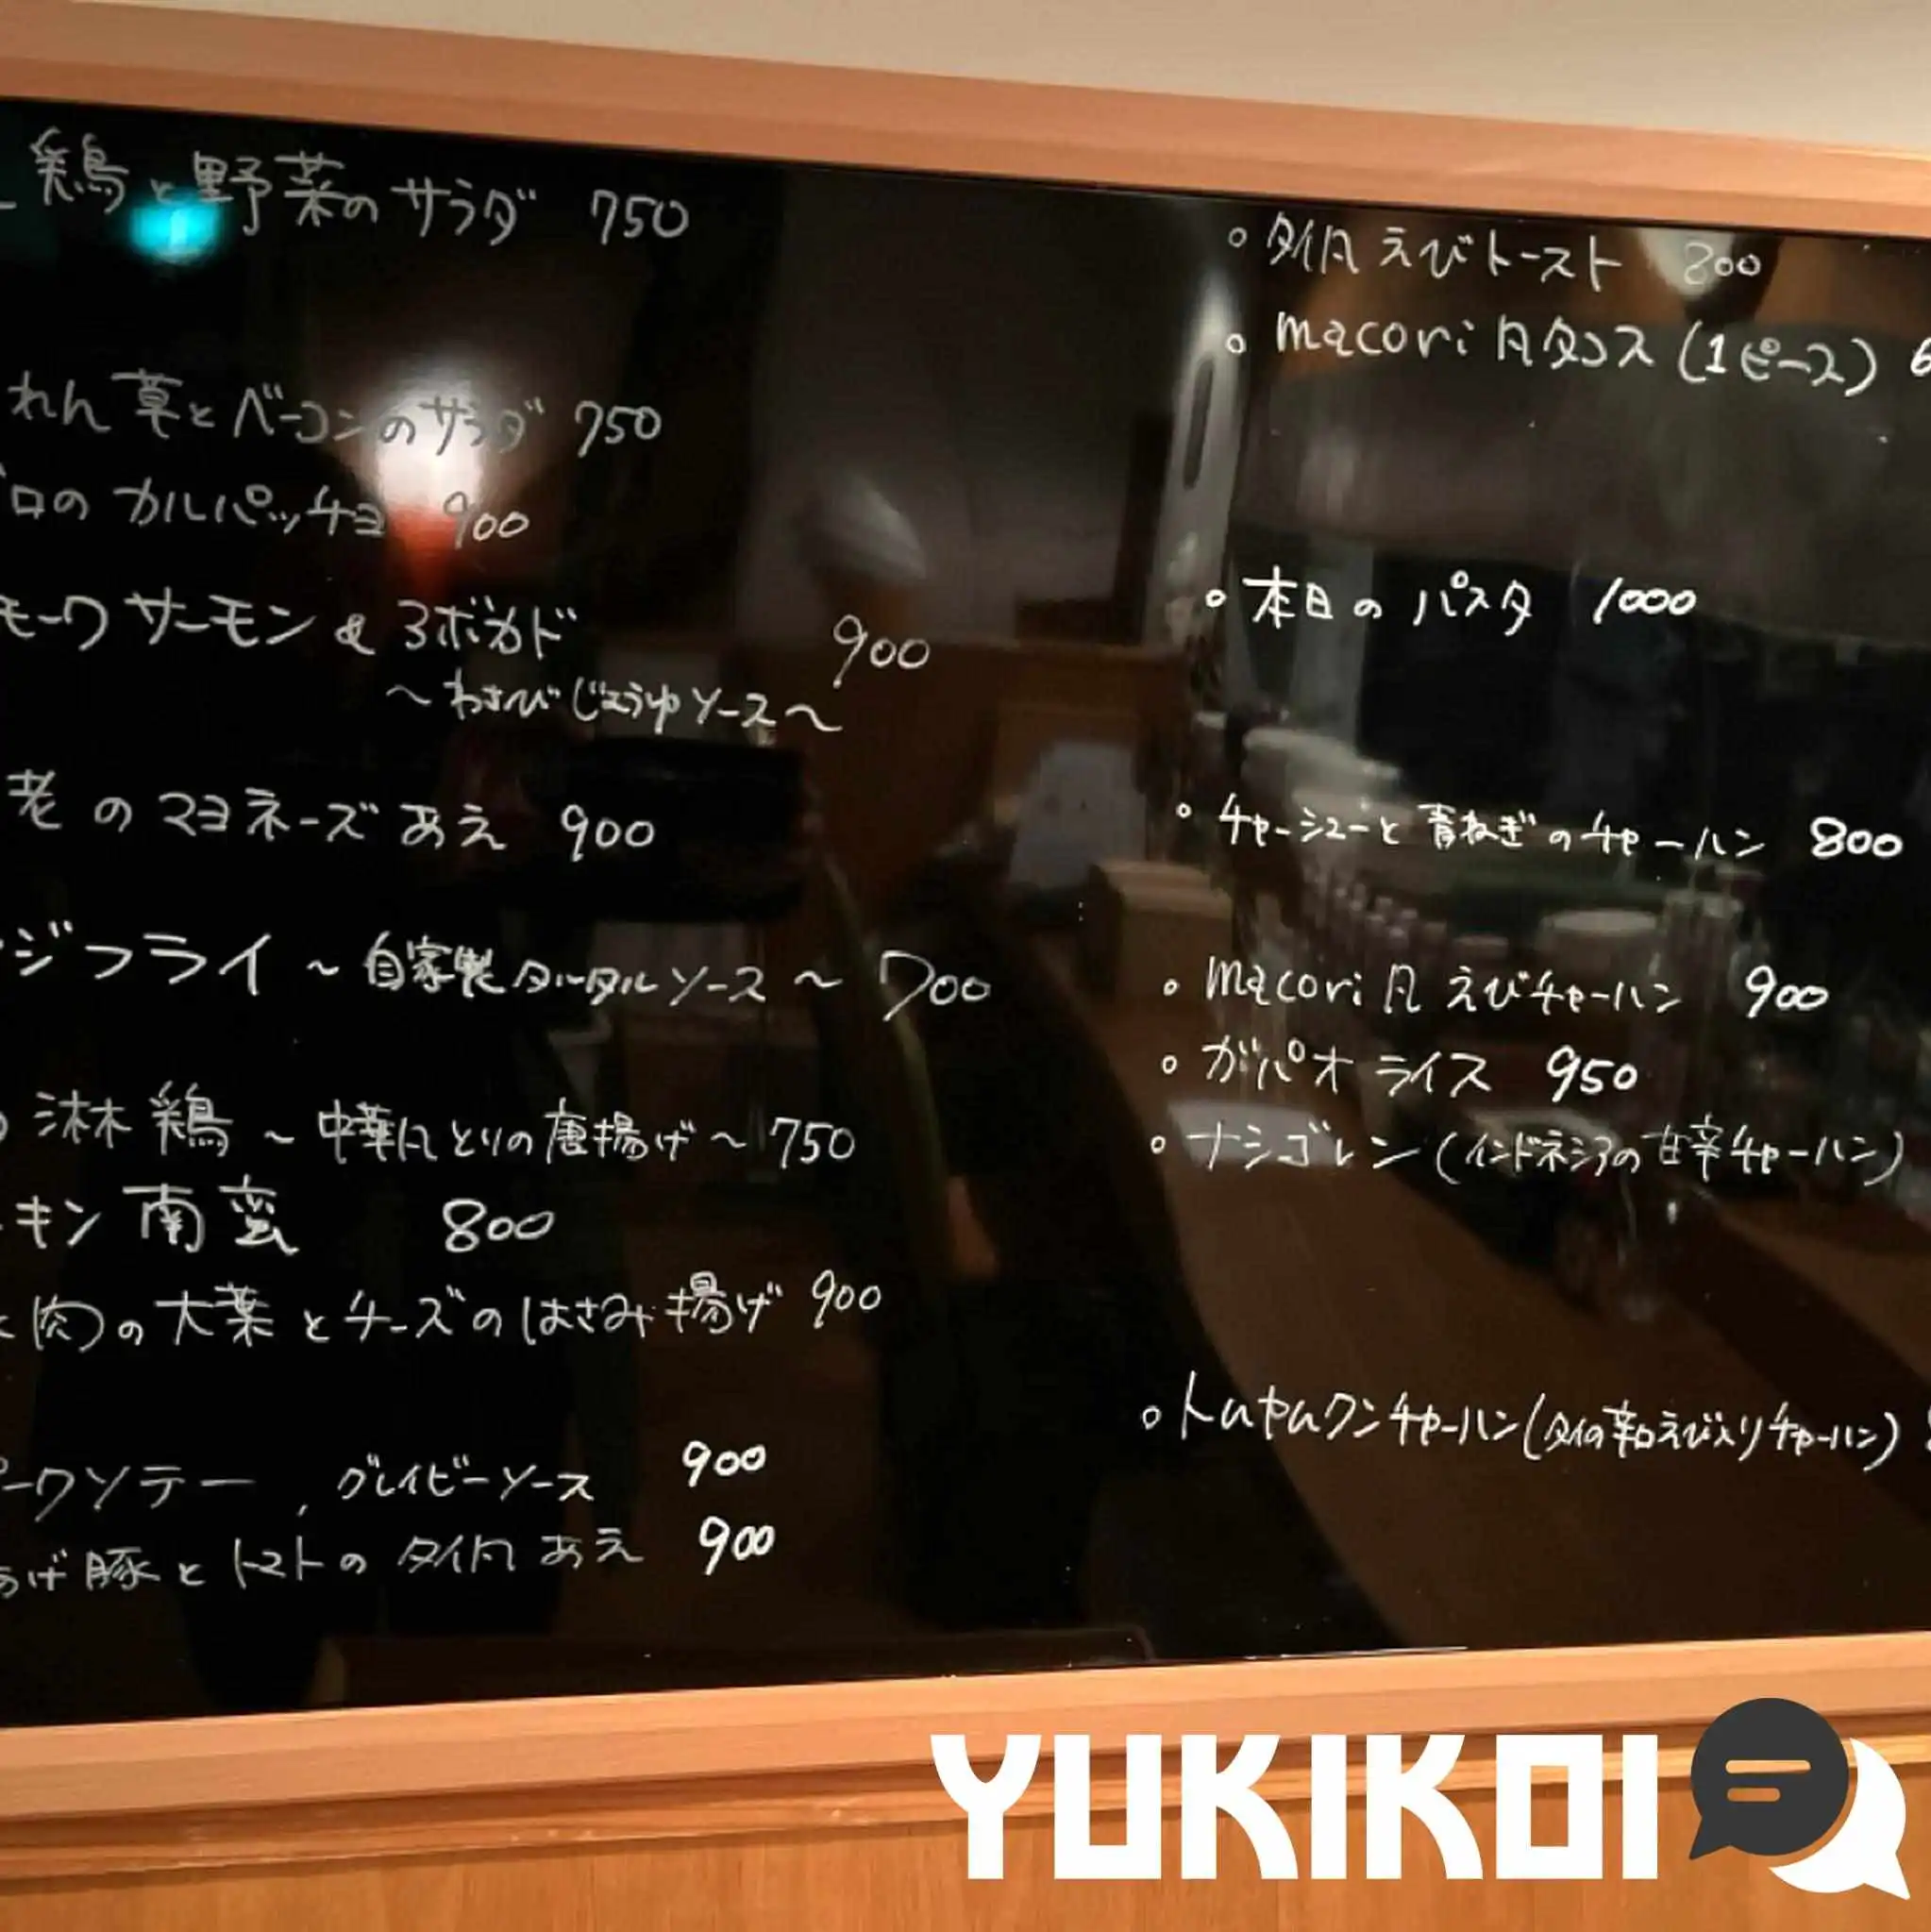 鶏と野菜のサラダ 750
れん草とベーコンのサラダ 750
ロのカルパッチョ 900
モークサーモン&アボカド 900
～わさびじょうゆソース～
老のマヨネーズあえ 900
ジフライ ～自家製タルタルソース～ 700
淋鶏 ～中華風とりの唐揚げ～ 750
キン南蛮 800
肉の大葉とチーズのはさみ揚げ 900
ークソテー, グレイビーソース 900
あげ豚とトマトのタイ風あえ 900
○タイ風えびトースト 800
○macori風タコス(1ピース) 6
○本日のパスタ 1000
○チャーシューと青ねぎのチャーハン 800
○macori風えびチャーハン 900
○ガパオライス 950
○ナシゴレン(インドネシアの甘辛チャーハン)
○トムヤムクンチャーハン(タイの辛口えび入りチャーハン)
YUKIKOI